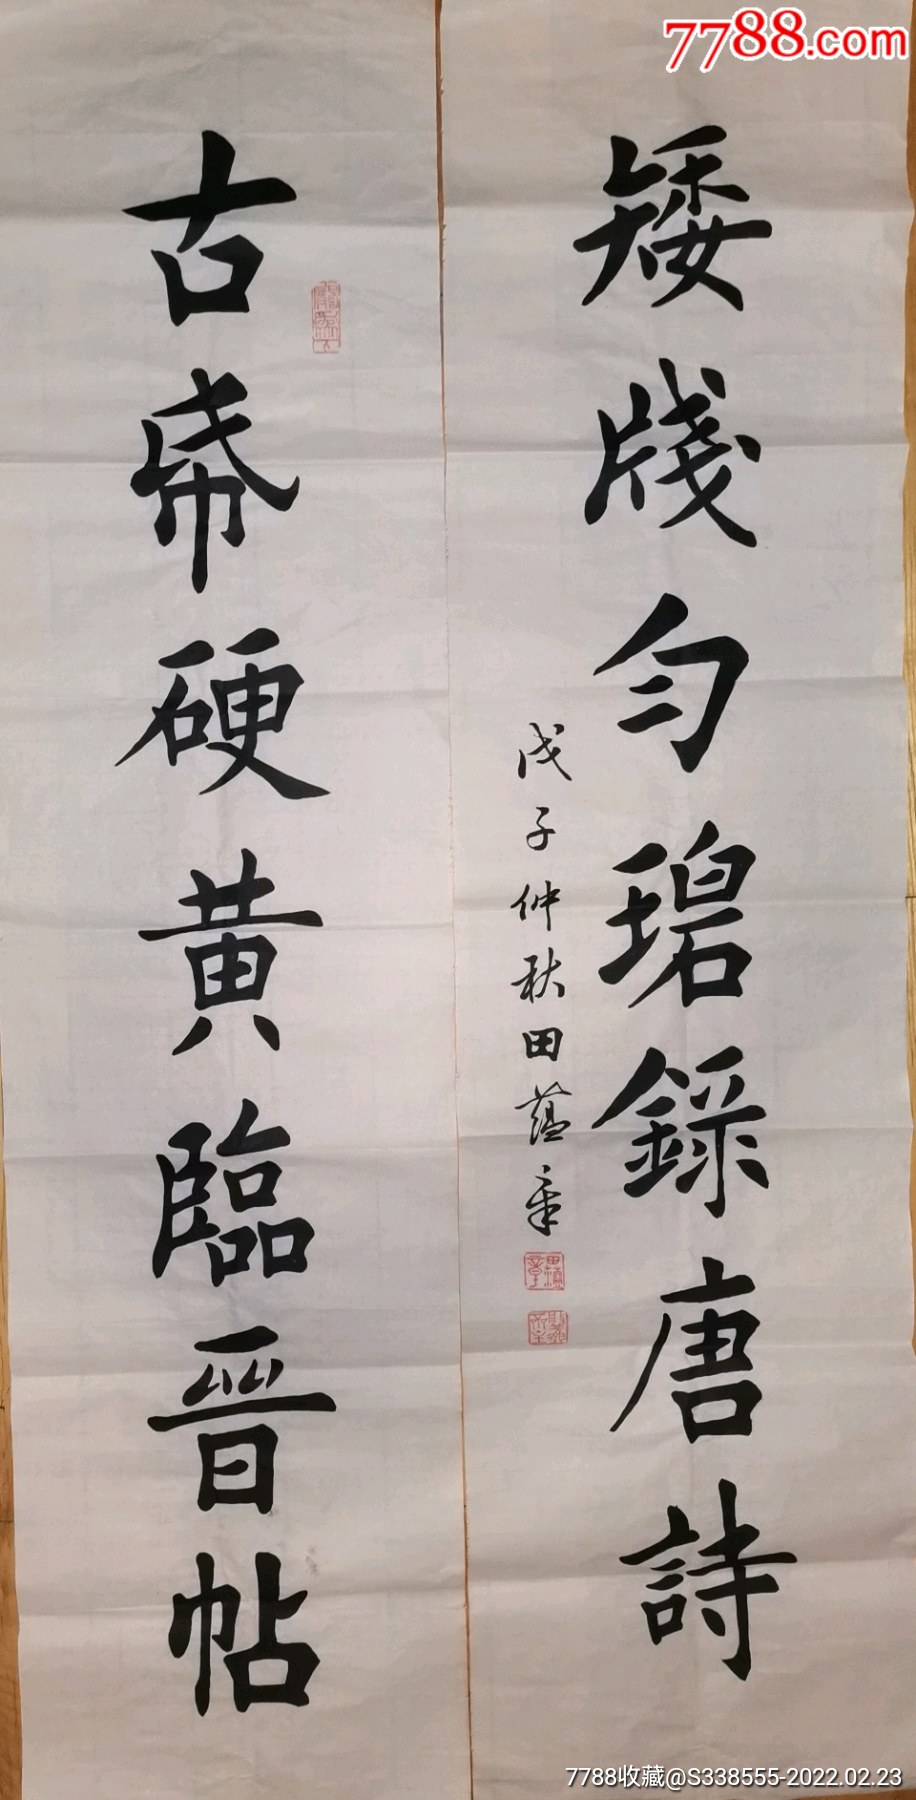 7788.com
矮牋匀碧錄唐詩
戊子仲秋田蘊章
古帋硬黄臨晉帖
7788收藏@S338555-2022.02.23